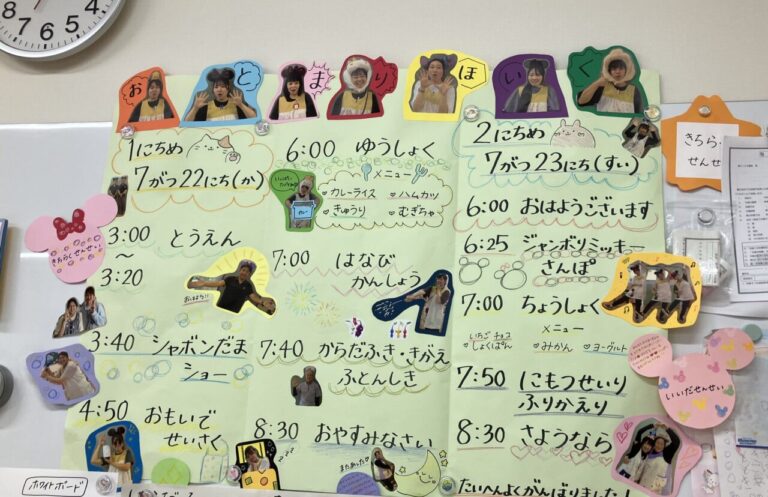 おとまりほいく
1にちめ
7がつ22にち(か)
3:00
～
3:20
とうえん
3:40 シャボンだま
ショー
4:50 おもいで
せいさく
6:00 ゆうしょく
メニュー
♥カレーライス ♥ハムカツ
♥きゅうり ♥むぎちゃ
7:00 はなび
かんしょう
7:40 からだふき・きがえ
ふとんしき
8:30 おやすみなさい
2にちめ
7がつ23にち(すい)
6:00 おはようございます
6:25 ジャンボリミッキー
さんぽ
7:00 ちょうしょく
メニュー
いちごチョコ
しょくぱん ♥みかん ♥ヨーグルト
7:50 にもつせいり
ふりかえり
8:30 さようなら
たいへんよくがんばりました
きちら
せんせ
いいだせんせい
ホワイトボード